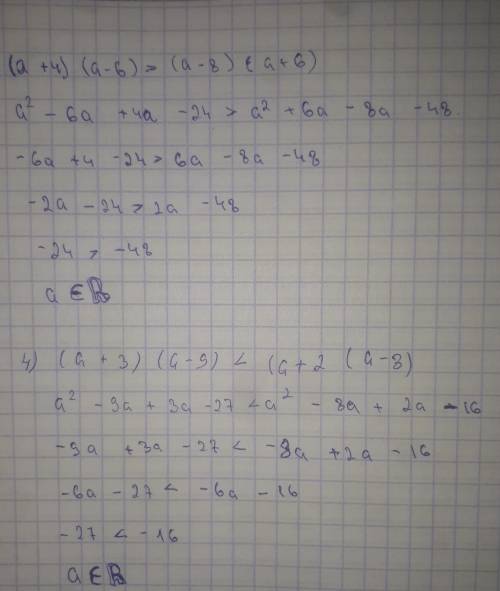 (a + 4) (a - 6) > (a - 8) (a + 6)
a² - 6a + 4a - 24 > a² + 6a - 8a - 48
- 6a + 4 - 24 > 6a - 8a - 48
- 2a - 24 > 2a - 48
- 24 > - 48
a ∈ R
4) (a + 3) (a - 9) < (a + 2 (a - 8)
a² - 9a + 3a - 27 < a² - 8a + 2a - 16
- 9a + 3a - 27 < - 8a + 2a - 16
- 6a - 27 < - 6a - 16
- 27 < - 16
a ∈ R